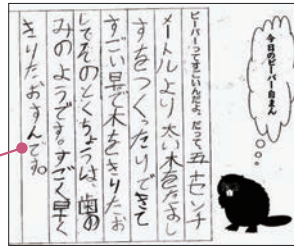 今日のビーバー自まん
ビーバーってすごいんだよ。だって、五十センチ
メートルより太い木をたおし
すをつくったりできて
すごい早さで木をきりたお
してそのとくちょうは、歯の
みのようです。すごく早く
きりたおすんです。